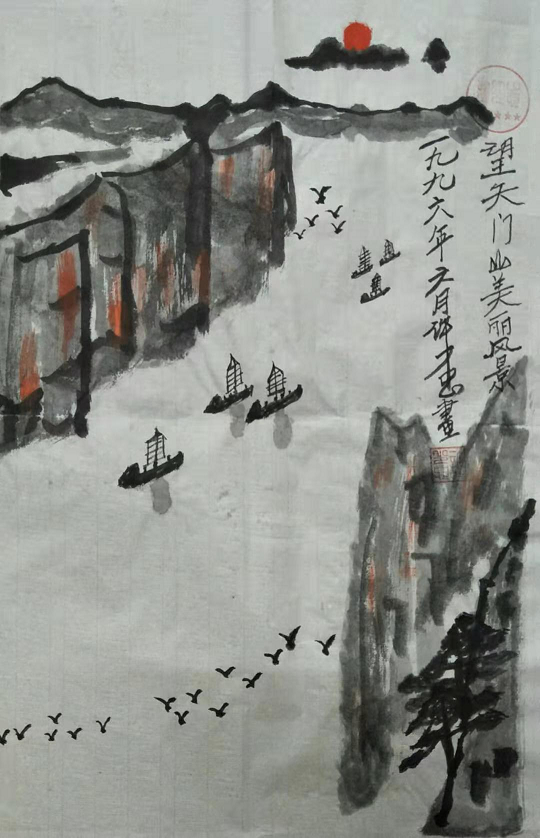 望天门山美丽风景
一九九六年五月许画